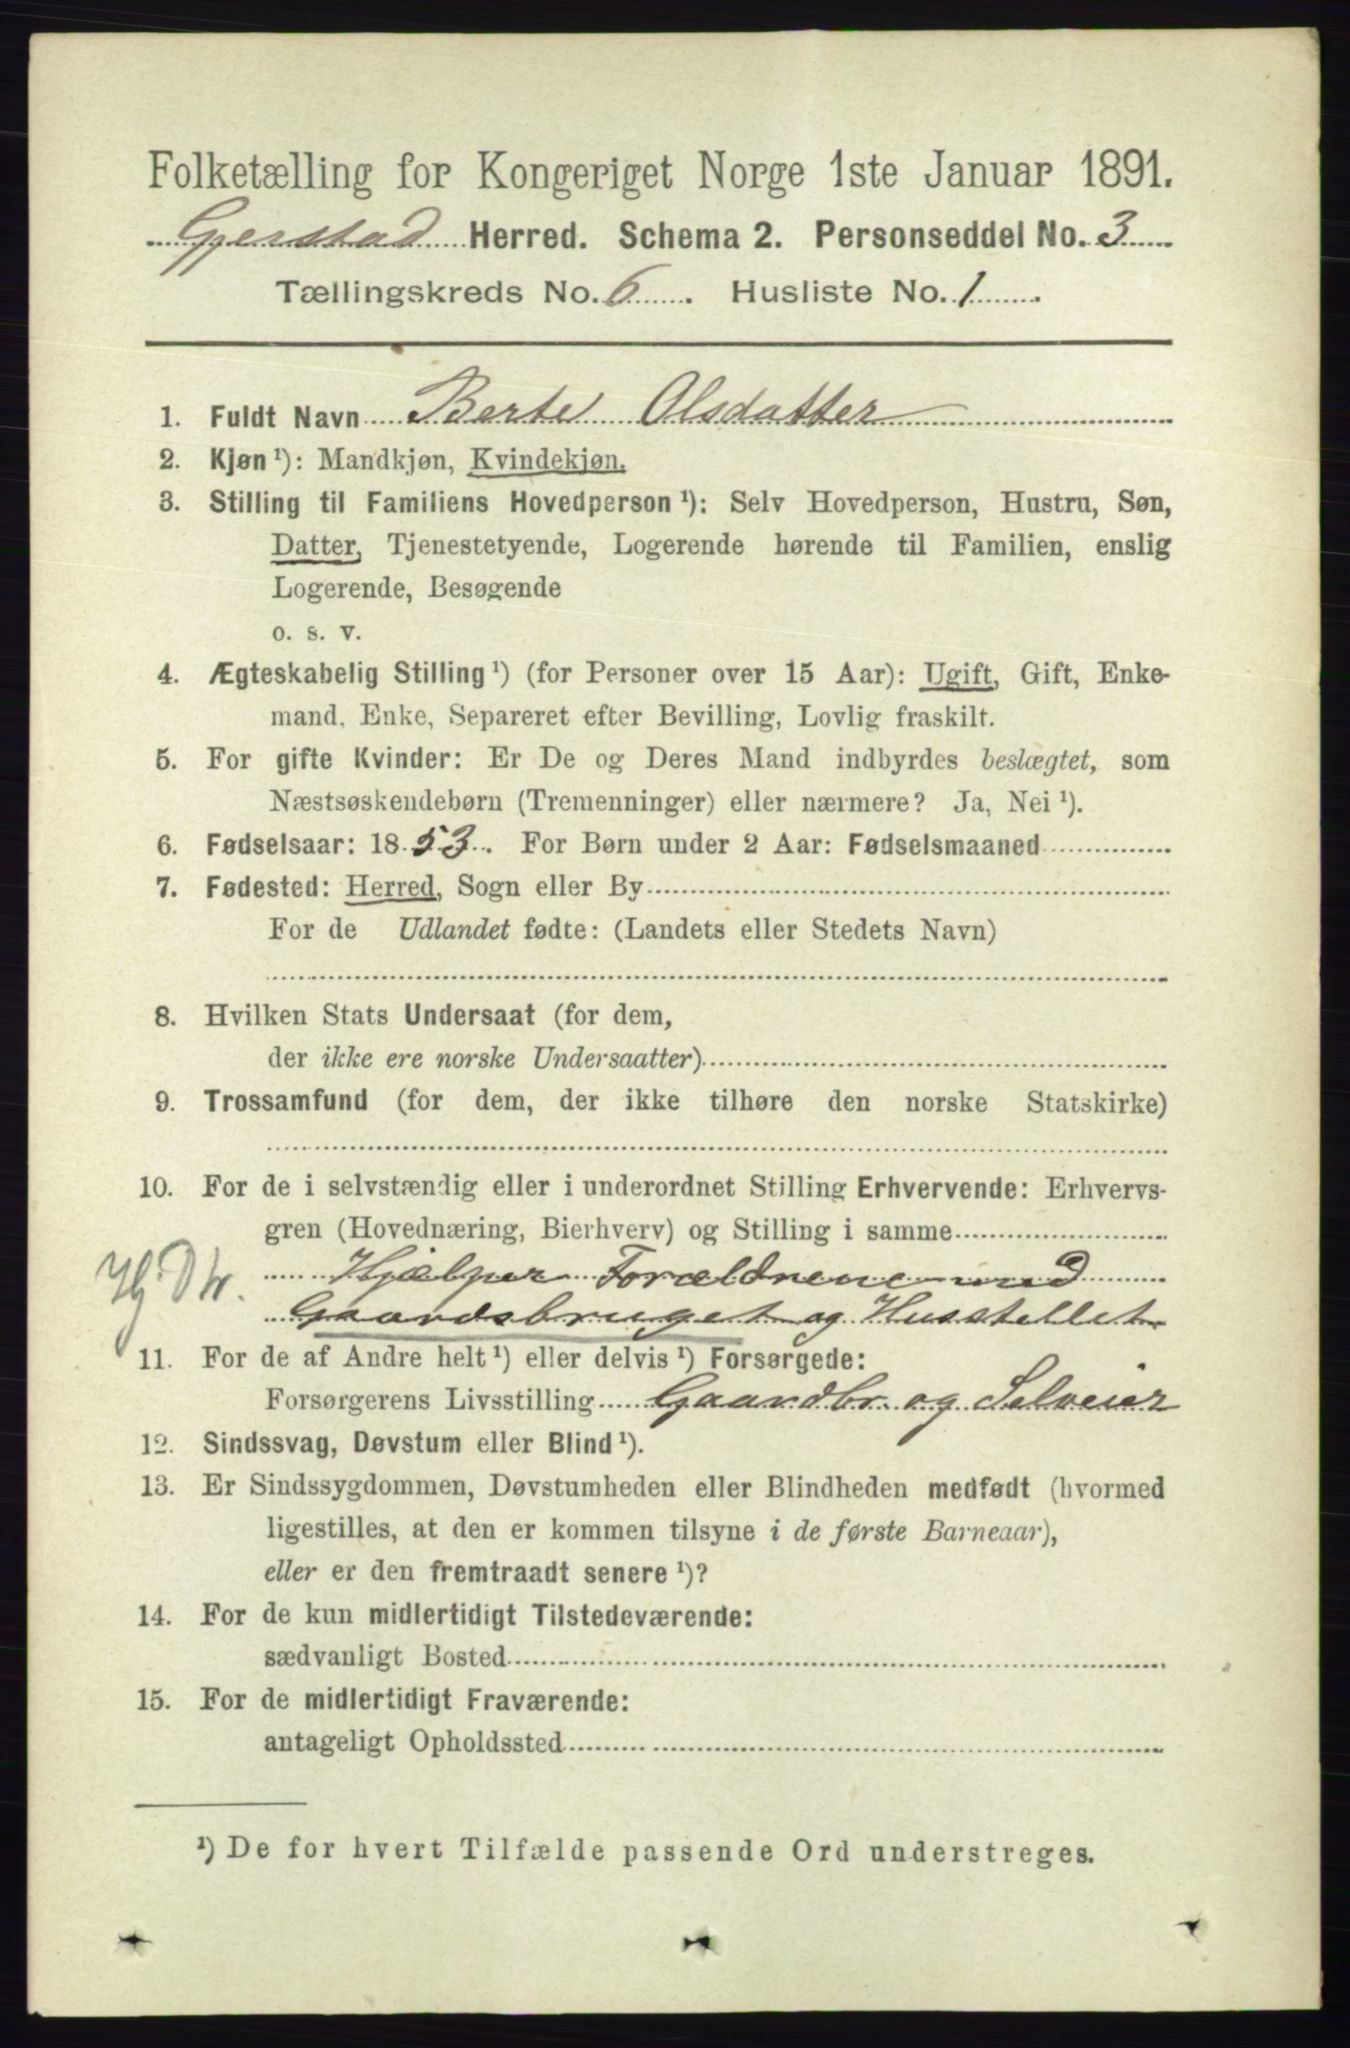 Folketælling for Kongeriget Norge 1ste Januar 1891.
Gjerstad Herred. Schema 2. Personseddel No. 3
Tællingskreds No. 6. Husliste No. 1.
1. Fuldt Navn Berte Olsdatter
2. Kjøn ¹): Mandkjøn, Kvindekjøn.
3. Stilling til Familiens Hovedperson ¹): Selv Hovedperson, Hustru, Søn,
Datter, Tjenestetyende, Logerende hørende til Familien, enslig
Logerende, Besøgende
o. s. v.
4. Ægteskabelig Stilling ¹) (for Personer over 15 Aar): Ugift, Gift, Enke-
mand, Enke, Separeret efter Bevilling, Lovlig fraskilt.
5. For gifte Kvinder: Er De og Deres Mand indbyrdes beslægtet, som
Næstsøskendebørn (Tremenninger) eller nærmere? Ja, Nei ¹).
6. Fødselsaar: 1853. For Børn under 2 Aar: Fødselsmaaned
7. Fødested: Herred, Sogn eller By
For de Udlandet fødte: (Landets eller Stedets Navn)
8. Hvilken Stats Undersaat (for dem,
der ikke ere norske Undersaatter)
9. Trossamfund (for dem, der ikke tilhøre den norske Statskirke)
10. For de i selvstændig eller i underordnet Stilling Erhvervende: Erhvervs-
gren (Hovednæring, Bierhverv) og Stilling i samme
Hjælper Forældrene med
Gaardsbruget og Husstellet
11. For de af Andre helt ¹) eller delvis ¹) Forsørgede:
Forsørgerens Livsstilling Gaardbr. og Selveier
12. Sindssvag, Døvstum eller Blind ¹).
13. Er Sindssygdommen, Døvstumheden eller Blindheden medfødt (hvormed
ligestilles, at den er kommen tilsyne i de første Barneaar),
eller er den fremtraadt senere ¹)?
14. For de kun midlertidigt Tilstedeværende:
sædvanligt Bosted
15. For de midlertidigt Fraværende:
antageligt Opholdssted
¹) De for hvert Tilfælde passende Ord understreges.